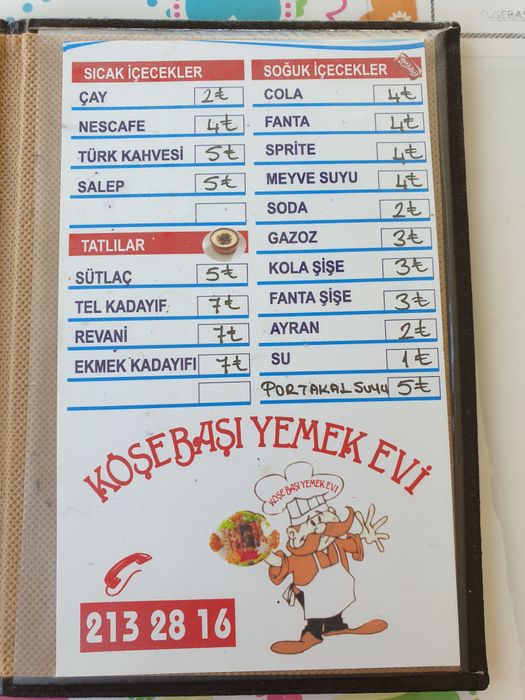 KÖŞEBAŞ
SICAK İÇECEKLER
ÇAY 2₺
NESCAFE 4₺
TÜRK KAHVESİ 5₺
SALEP 5₺
TATLILAR
SÜTLAÇ 5₺
TEL KADAYIF 7₺
REVANİ 7₺
EKMEK KADAYIFI 7₺
SOĞUK İÇECEKLER
COLA 4₺
FANTA 4₺
SPRİTE 4₺
MEYVE SUYU 4₺
SODA 2₺
GAZOZ 3₺
KOLA ŞİŞE 3₺
FANTA ŞİŞE 3₺
AYRAN 2₺
SU 1₺
PORTAKAL SUYU 5₺
KÖŞEBAŞI YEMEK EVİ
KÖŞE BAŞI YEMEK EVİ
213 28 16